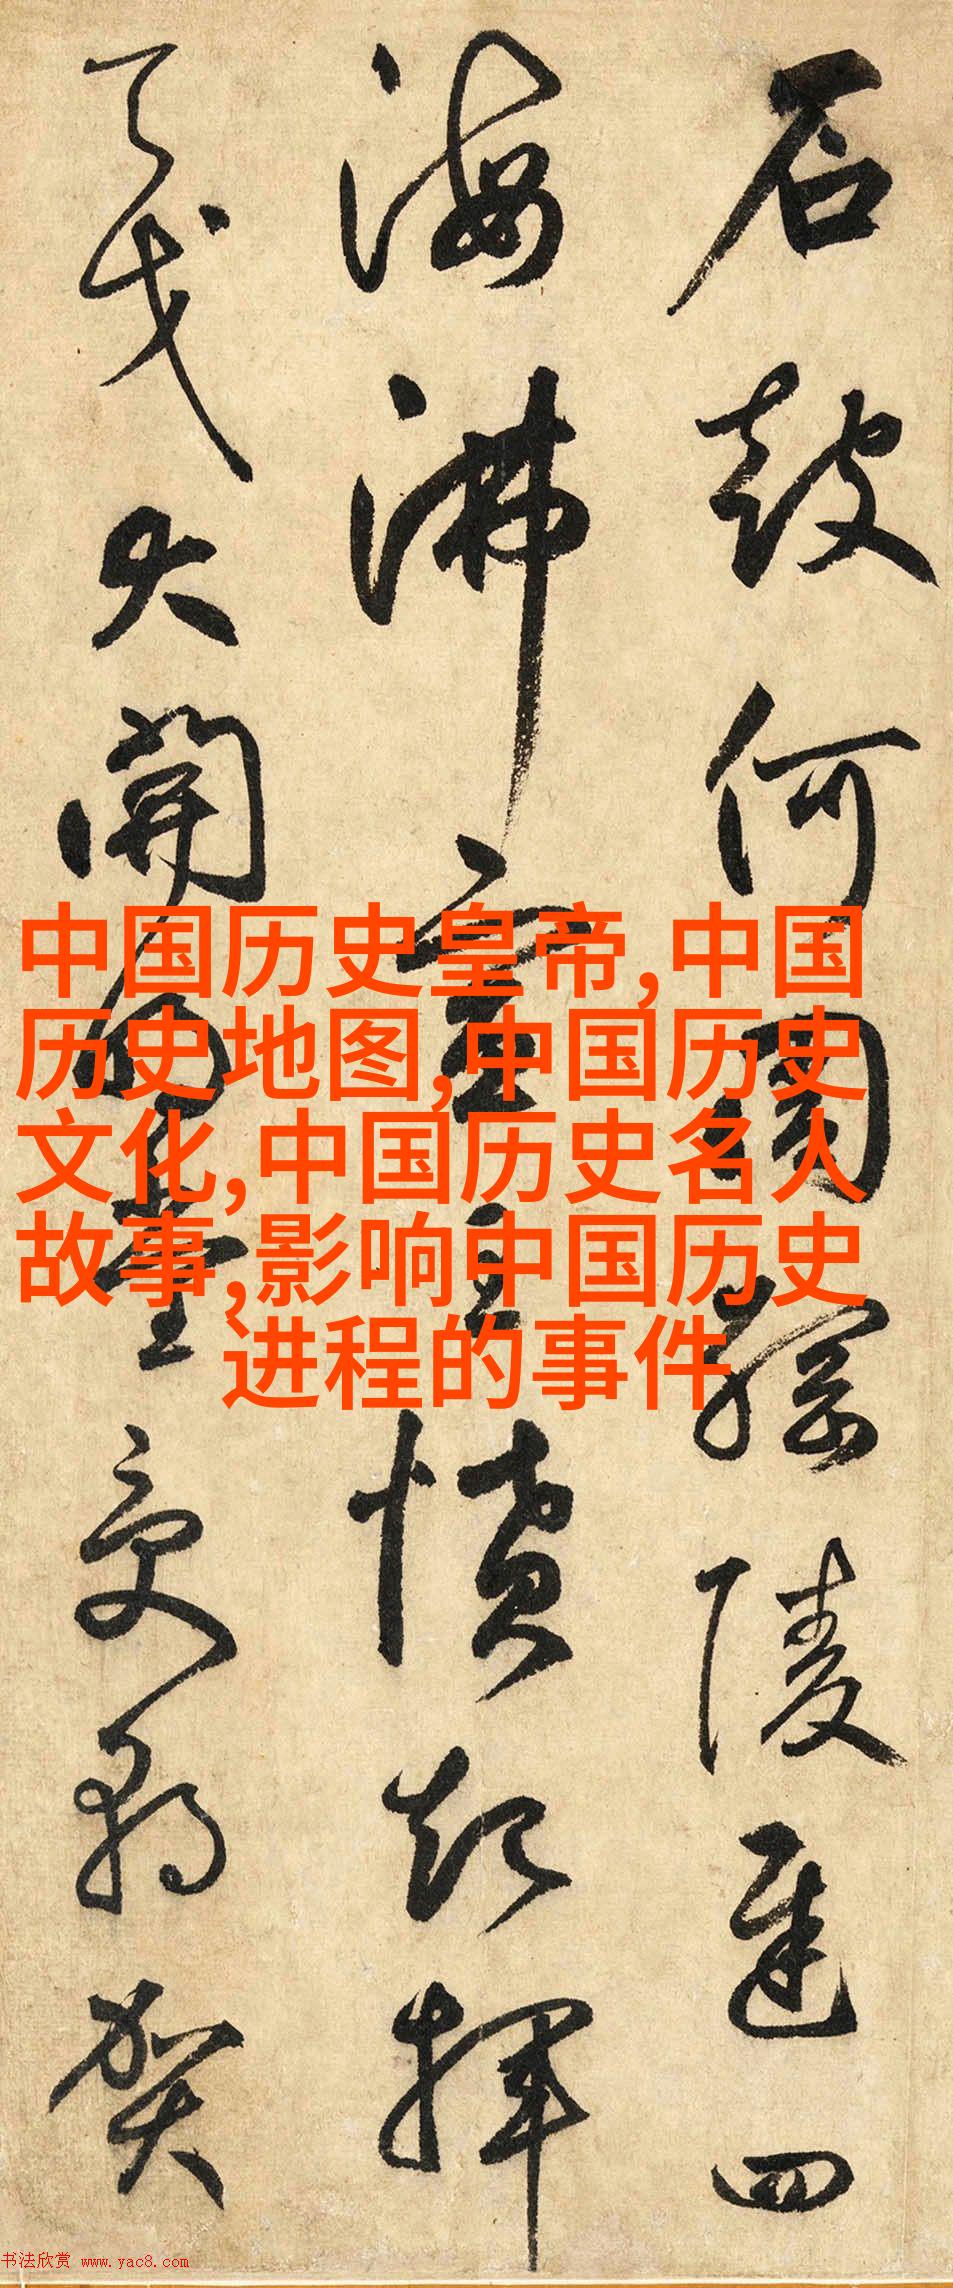 石鼓何周綱陵遲四
海沸宣王憤起揮
天戈大開明堂受朝賀
中国历史皇帝,中国
历史地图,中国历史
文化,中国历史名人
故事,影响中国历史
进程的事件
书法欣赏 www.yac8.com